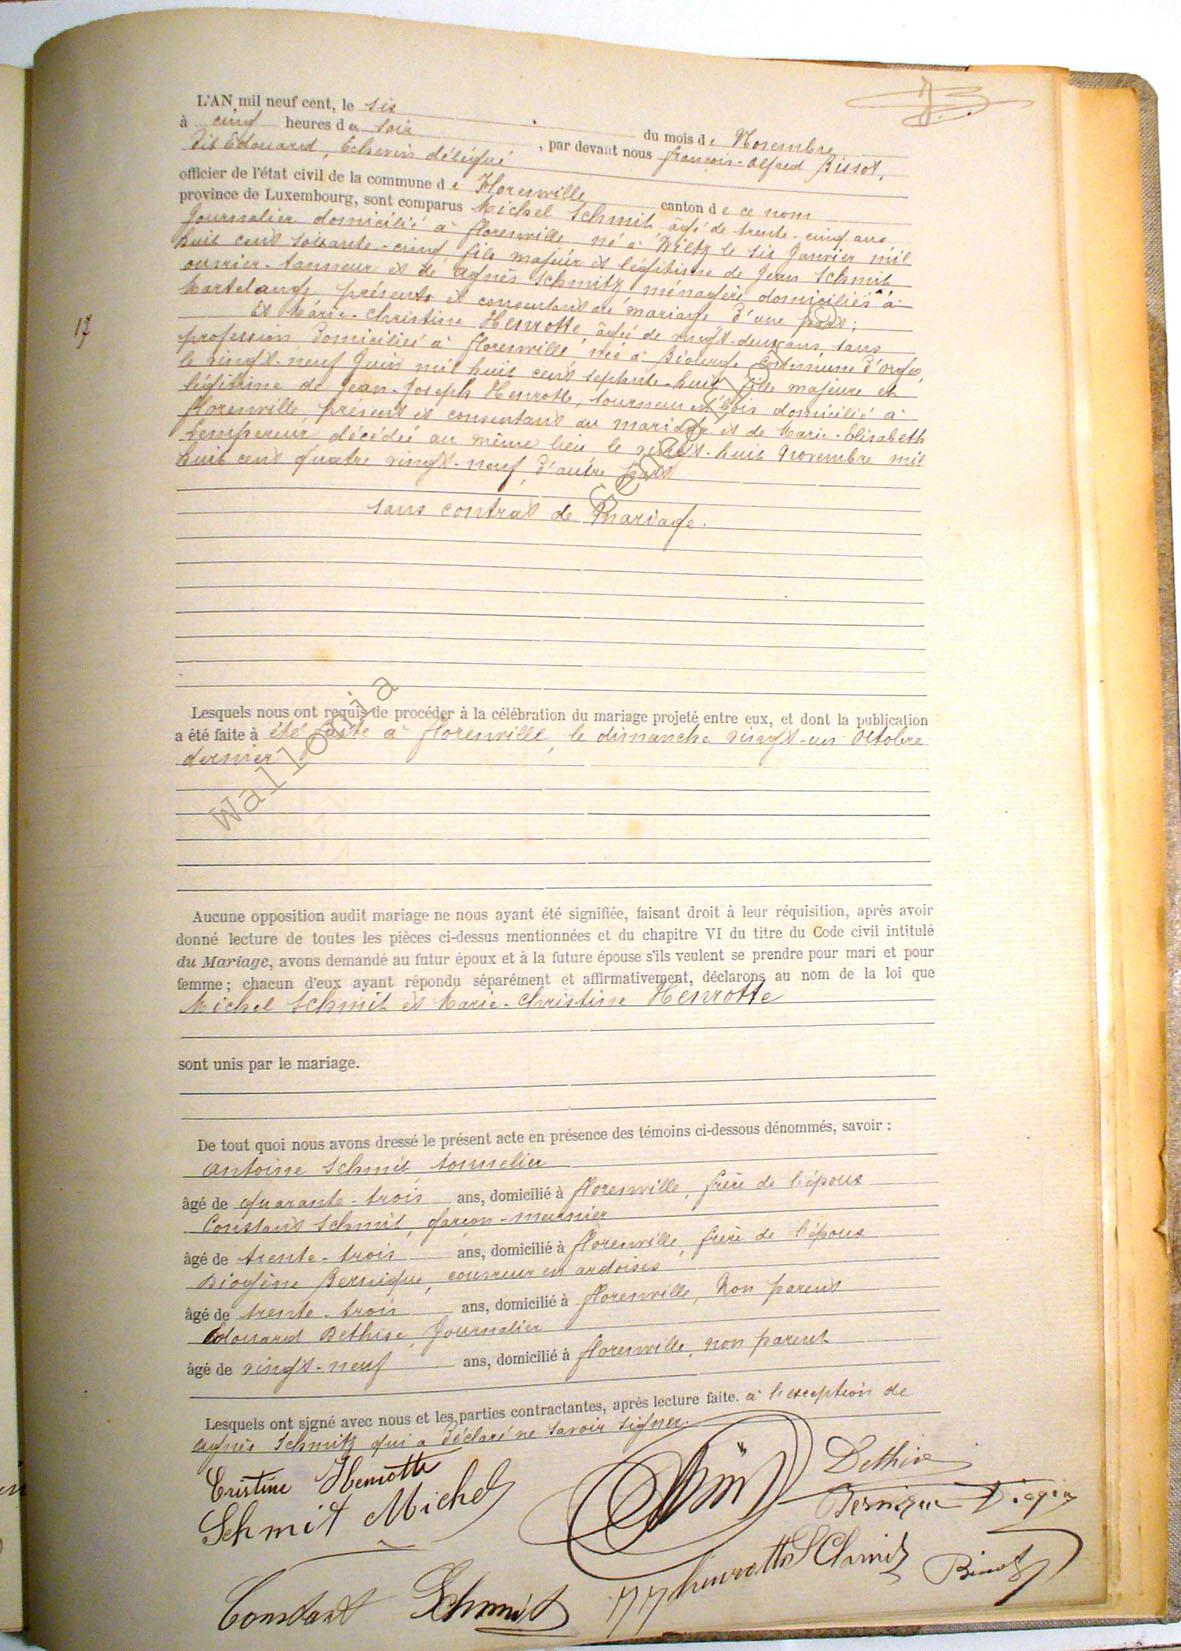 17
L'AN mil neuf cent, le six du mois de Novembre
à cinq heures du soir , par devant nous françois-alfred Bissot,
dit Edouard, Echevin délégué
officier de l'état civil de la commune de Florenville canton de ce nom
province de Luxembourg, sont comparus Michel Schmit âgé de trente-cinq ans
Journalier domicilié à florenville né à Wiltz le six Janvier mil
huit cent soixante-cinq fils majeur et légitime de Jean Schmit
ouvrier-tanneur et de Agnès Schmitz ménagère domiciliés à
Martelange présents et consentant au mariage d'une part;
Et Marie-Christine Henrotte âgée de vingt-deux ans, sans
profession domiciliée à florenville née à Biourge commune d'Orgeo,
le vingt-neuf Juin mil huit cent septante-huit fille majeure et
légitime de Jean-Joseph Henrotte, tourneur en bois domicilié à
florenville présent et consentant au mariage et de Marie-Elisabeth
Lempereur décédée au même lieu le vingt-huit Novembre mil
huit cent quatre vingt-neuf, d'autre part
sans contrat de mariage.
Lesquels nous ont requis de procéder à la célébration du mariage projeté entre eux, et dont la publication
a été faite à été faite à florenville, le dimanche vingt-un Octobre
dernier
wallonia
Aucune opposition audit mariage ne nous ayant été signifiée, faisant droit à leur réquisition, après avoir
donné lecture de toutes les pièces ci-dessus mentionnées et du chapitre VI du titre du Code civil intitulé
du Mariage, avons demandé au futur époux et à la future épouse s'ils veulent se prendre pour mari et pour
femme ; chacun d'eux ayant répondu séparément et affirmativement, déclarons au nom de la loi que
Michel Schmit et Marie-Christine Henrotte
sont unis par le mariage.
De tout quoi nous avons dressé le présent acte en présence des témoins ci-dessous dénommés, savoir :
Antoine Schmit tonnelier
âgé de quarante-trois ans, domicilié à florenville, frère de l'époux
Constant Schmit, garçon-meunier
âgé de trente-trois ans, domicilié à florenville, frère de l'époux
Diogène Bernique, couvreur en ardoises
âgé de trente-trois ans, domicilié à florenville, Non parent
Edouard Dethise, Journalier
âgé de vingt-neuf ans, domicilié à florenville, non parent
Lesquels ont signé avec nous et les parties contractantes, après lecture faite. à l'exception de
Agnès Schmitz qui a déclaré ne savoir signer.
Cristine Henrotte
Dethise
Schmit Michel
Bernique
henrotte Schmit
Constant Schmit